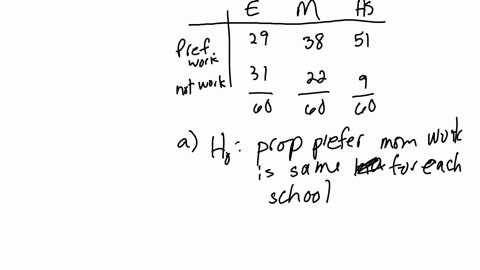 E M HS
Pref. work 29 38 51
not work 31 22 9
60 60 60
a) H₀: prop prefer mom work
is same for each
school